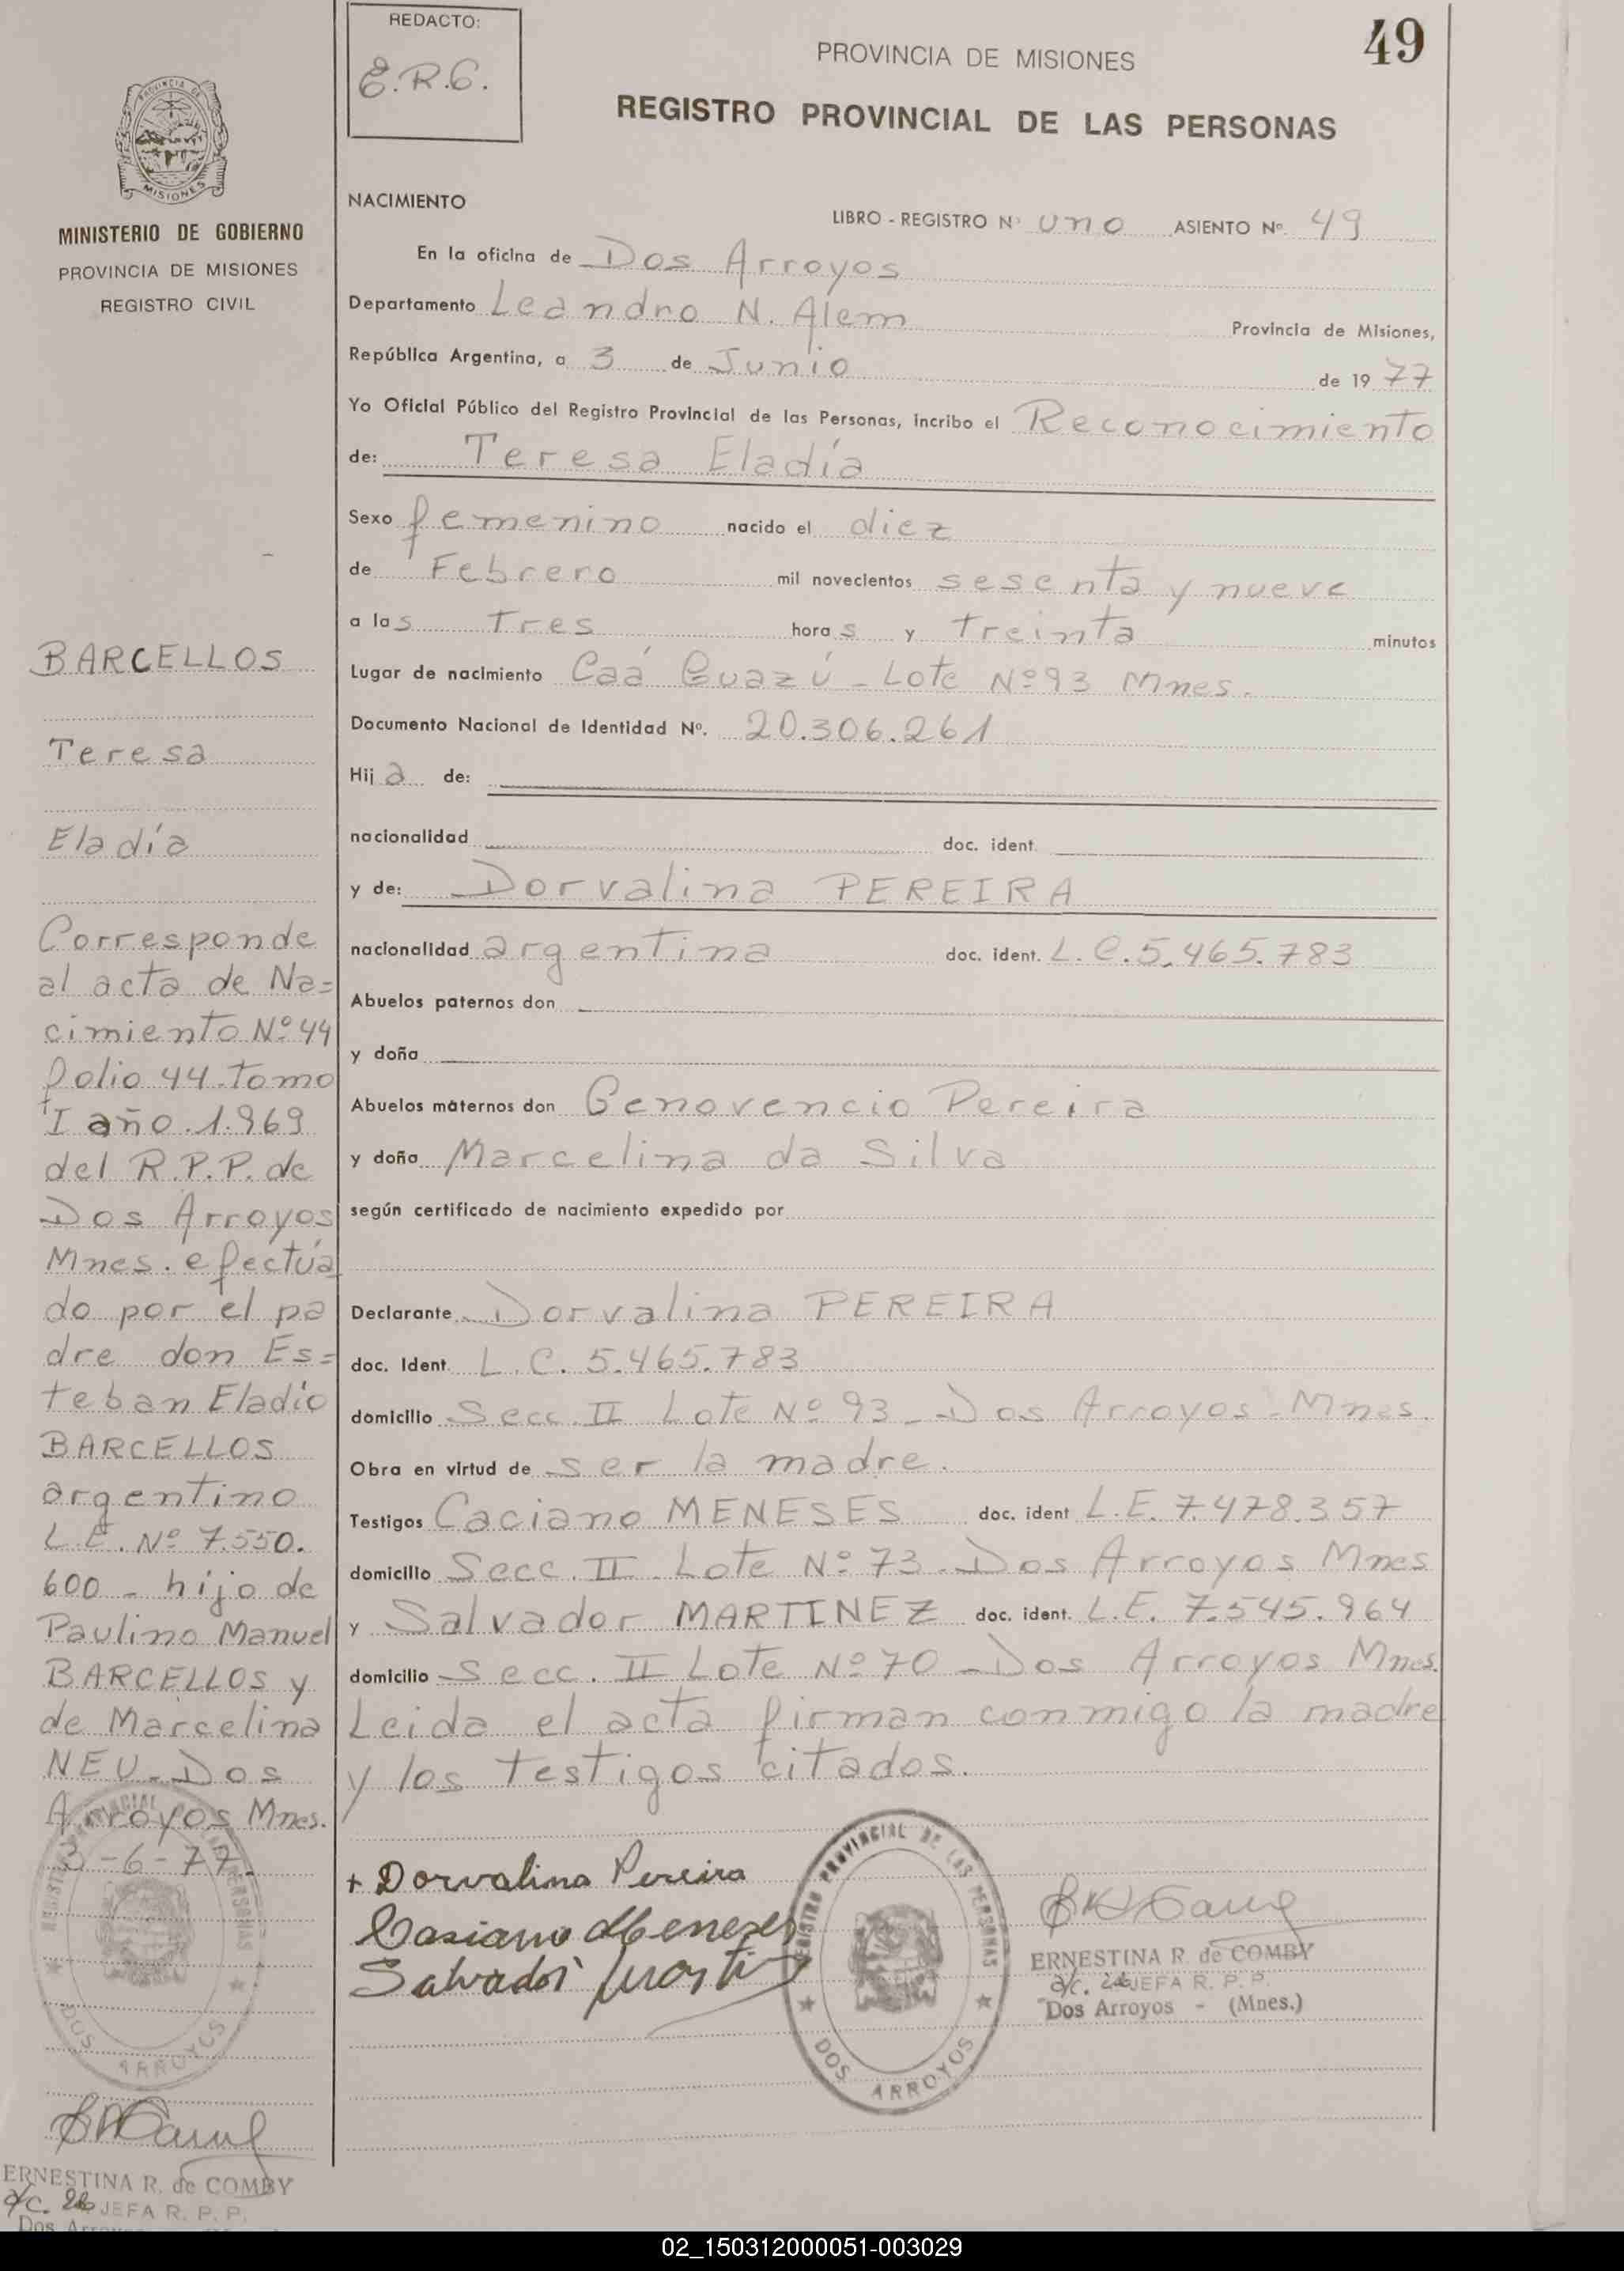 REDACTO:
E.R.C.
PROVINCIA DE MISIONES
49
REGISTRO PROVINCIAL DE LAS PERSONAS
PROVINCIA DE
MISIONES
MINISTERIO DE GOBIERNO
PROVINCIA DE MISIONES
REGISTRO CIVIL
BARCELLOS
Teresa
Eladía
Corresponde
al acta de Na=
cimiento Nº 44
folio 44. Tomo
I año. 1.969
del R.P.P. de
Dos Arroyos
Mnes. efectúa
do por el pa
dre don Es=
teban Eladio
BARCELLOS
argentino
L.E. Nº 7.550.
600 - hijo de
Paulino Manuel
BARCELLOS y
de Marcelina
NEU. Dos
Arroyos Mnes.
3-6-77.
REGISTRO PROVINCIAL DE LAS PERSONAS
DOS ARROYOS
ERNESTINA R. de COMBY
a/c. JEFA R. P. P.
Dos
NACIMIENTO
LIBRO - REGISTRO Nº uno ASIENTO Nº 49
En la oficina de Dos Arroyos
Departamento Leandro N. Alem Provincia de Misiones,
República Argentina, a 3 de Junio de 19 77
Yo Oficial Público del Registro Provincial de las Personas, incribo el Reconocimiento
de: Teresa Eladía
Sexo femenino nacido el diez
de Febrero mil novecientos sesenta y nueve
a las tres horas y treinta minutos
Lugar de nacimiento Caá Guazú - Lote Nº 93 Mnes.
Documento Nacional de Identidad Nº. 20.306.261
Hija de:
nacionalidad doc. ident.
y de: Dorvalina PEREIRA
nacionalidad argentina doc. ident. L.C. 5.465.783
Abuelos paternos don
y doña
Abuelos maternos don Genovencio Pereira
y doña Marcelina da Silva
según certificado de nacimiento expedido por
Declarante Dorvalina PEREIRA
doc. Ident. L.C. 5.465.783
domicilio Secc. II Lote Nº 93 - Dos Arroyos - Mnes.
Obra en virtud de ser la madre.
Testigos Caciano MENESES doc. ident L.E. 7.478.357
domicilio Secc. II. Lote Nº 73. Dos Arroyos Mnes
y Salvador MARTINEZ doc. ident. L.E. 7.545.964
domicilio Secc. II Lote Nº 70 - Dos Arroyos Mnes.
Leida el acta firman conmigo la madre
y los testigos citados.
+ Dorvalina Pereira
Casiano Meneses
Salvador
REGISTRO PROVINCIAL DE LAS PERSONAS
DOS ARROYOS
ERNESTINA R. de COMBY
a/c. JEFA R. P. P.
Dos Arroyos - (Mnes.)
02_150312000051-003029